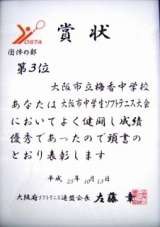 賞状
団体の部
第3位
大阪市立梅香中学校
あなたは大阪市中学生ソフトテニス大会
においてよく健闘し成績
優秀であったので頭書の
とおり表彰します
平成 25年10月13日
大阪府ソフトテニス連盟会長 左藤 章